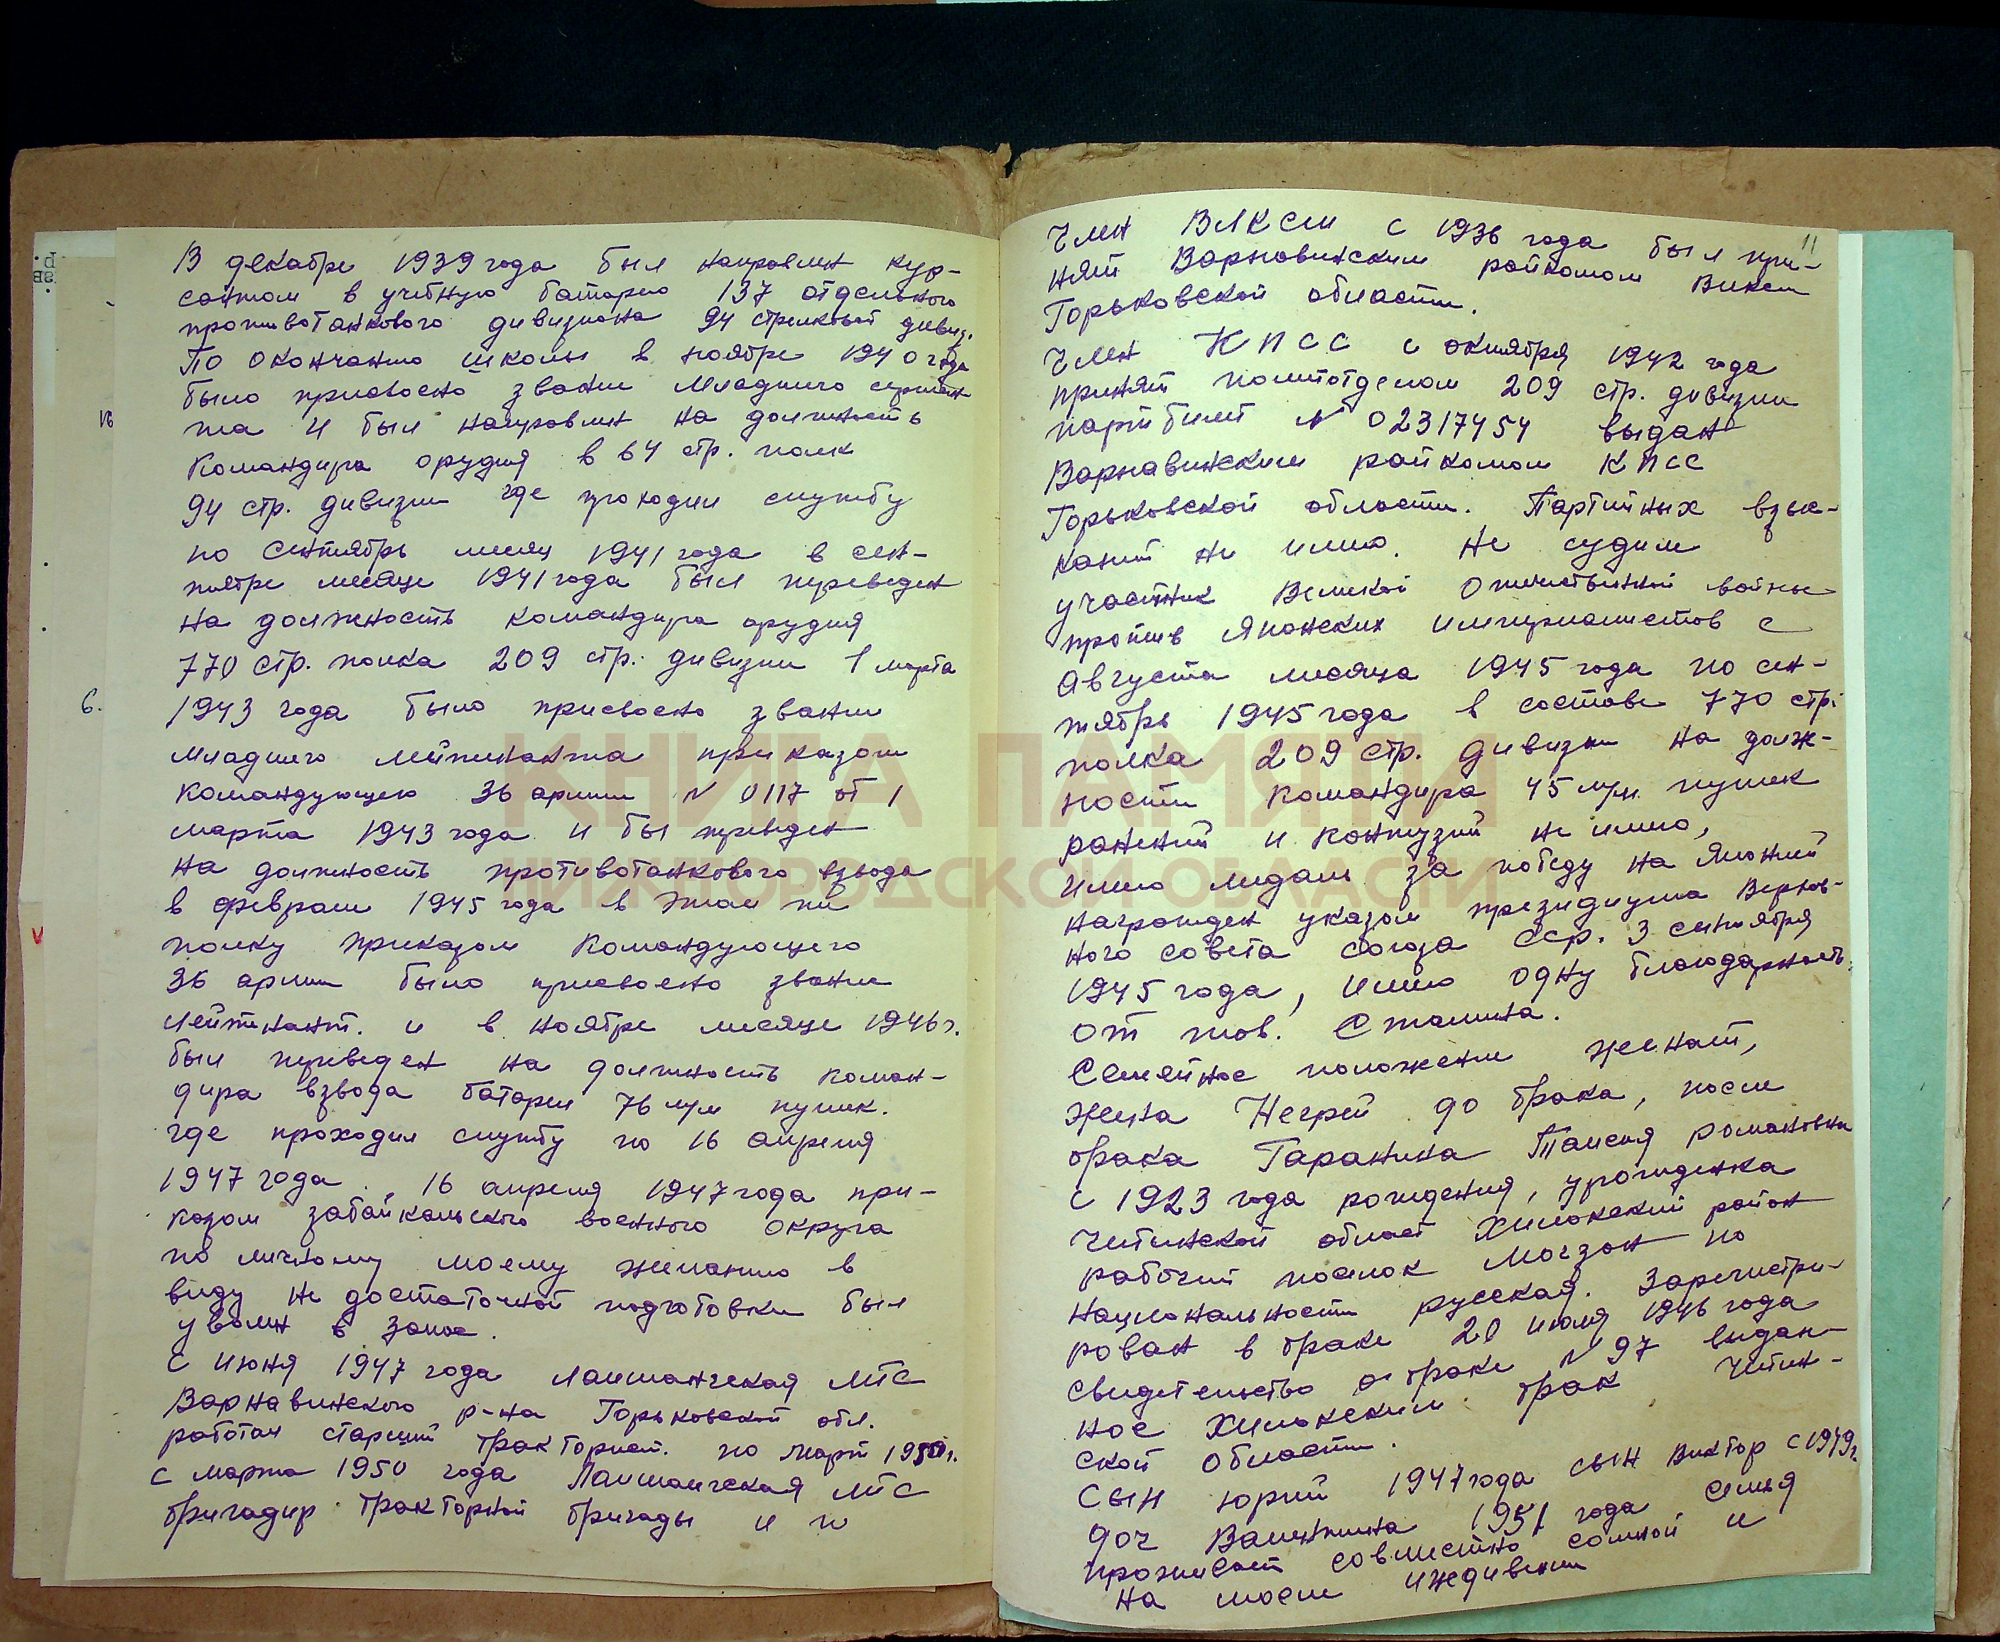 В декабре 1939 года был направлен кур-
сантом в учебную батарею 137 отдельного
противотанкового дивизиона 94 стрелковой дивиз.
По окончанию школы в ноябре 1940 года
было присвоено звание Младшего сержан
та и был направлен на должность
командира орудия в 64 стр. полк
94 стр. дивизии где проходил службу
по сентябрь месяц 1941 года в сен-
тябре месяце 1941 года был переведен
на должность командира орудия
770 стр. полка 209 стр. дивизии 1 марта
1943 года было присвоено звание
младшего лейтенанта приказом
командующего 36 армии N 0117 от 1
марта 1943 года и был переведен
на должность противотанкового взвода
в феврале 1945 года в этом же
полку приказом командующего
36 армии было присвоено звание
лейтенант. и в ноябре месяце 1946 г.
был переведен на должность коман-
дира взвода батареи 76 м/м пушек.
где проходил службу по 16 апреля
1947 года. 16 апреля 1947 года при-
казом забайкальского военного округа
по личному моему желанию в
виду не достаточной подготовки был
уволен в запас.
С июня 1947 года Лапшангская МТС
Варнавинского р-на Горьковской обл.
работал старший тракторист. по март 1950 г.
С марта 1950 года Лапшангская МТС
бригадир тракторной бригады и по
6.
11
Член ВЛКСМ с 1936 года был при-
нят Варновинским райкомом ВЛКСМ
Горьковской области.
Член КПСС с октября 1942 года
принят политотделом 209 стр. дивизии
партбилет N 02317454 выдан
Варнавинским райкомом КПСС
Горьковской области. Партийных взыс-
каний не имею. Не судим
участник Великой Отечественной войны
против Японских империалистов с
Августа месяца 1945 года по сен-
тябрь 1945 года в составе 770 стр.
полка 209 стр. дивизии на долж-
ности командира 45 м/м. пушек
ранений и контузий не имею,
имею медаль за победу на Японией
награжден указом президиума Верхов-
ного совета союза ССР. 3 сентября
1945 года, имею одну благодарность
от тов. Сталина.
Семейное положение женат,
жена Негрей до брака, после
брака Гаранина Таисия романовна
с 1923 года рождения, урожденка
Читинской област Хилокский район
рабочий поселок Могзон по
национальности русская. Зарегистри-
рован в браке 20 июля 1946 года
свидетельство о браке N 97 выдан-
ное Хилокским брак Читин-
ской области.
Сын юрий 1947 года сын Виктор с 1949 г.
доч Валентина 1951 года семья
проживает совместно сомной и
на моем иждивении
КНИГА ПАМЯТИ
НИЖЕГОРОДСКОЙ ОБЛАСТИ